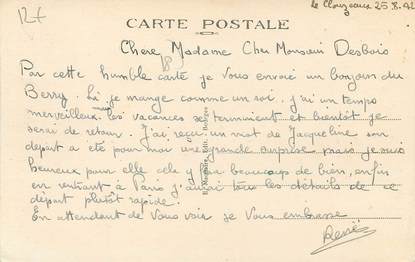 le Clouzeaux 25.8.42
12f
CARTE POSTALE
Chere Madame Cher Monsieur Desbois
Par cette humble carte je vous envoi un bonjour du
Berry. Là je mange comme un roi. j'ai un temps
merveilleux. les vacances se terminent et bientôt je
serai de retour. J'ai reçu un mot de Jacqueline son
départ a été pour moi une grande surprise mais je suis
heureux pour elle cela y fera beaucoup de bien, enfin
en rentrant à Paris j'aurai tous les détails de ce
départ plutôt rapide.
En attendant de vous voir je vous embrasse
René